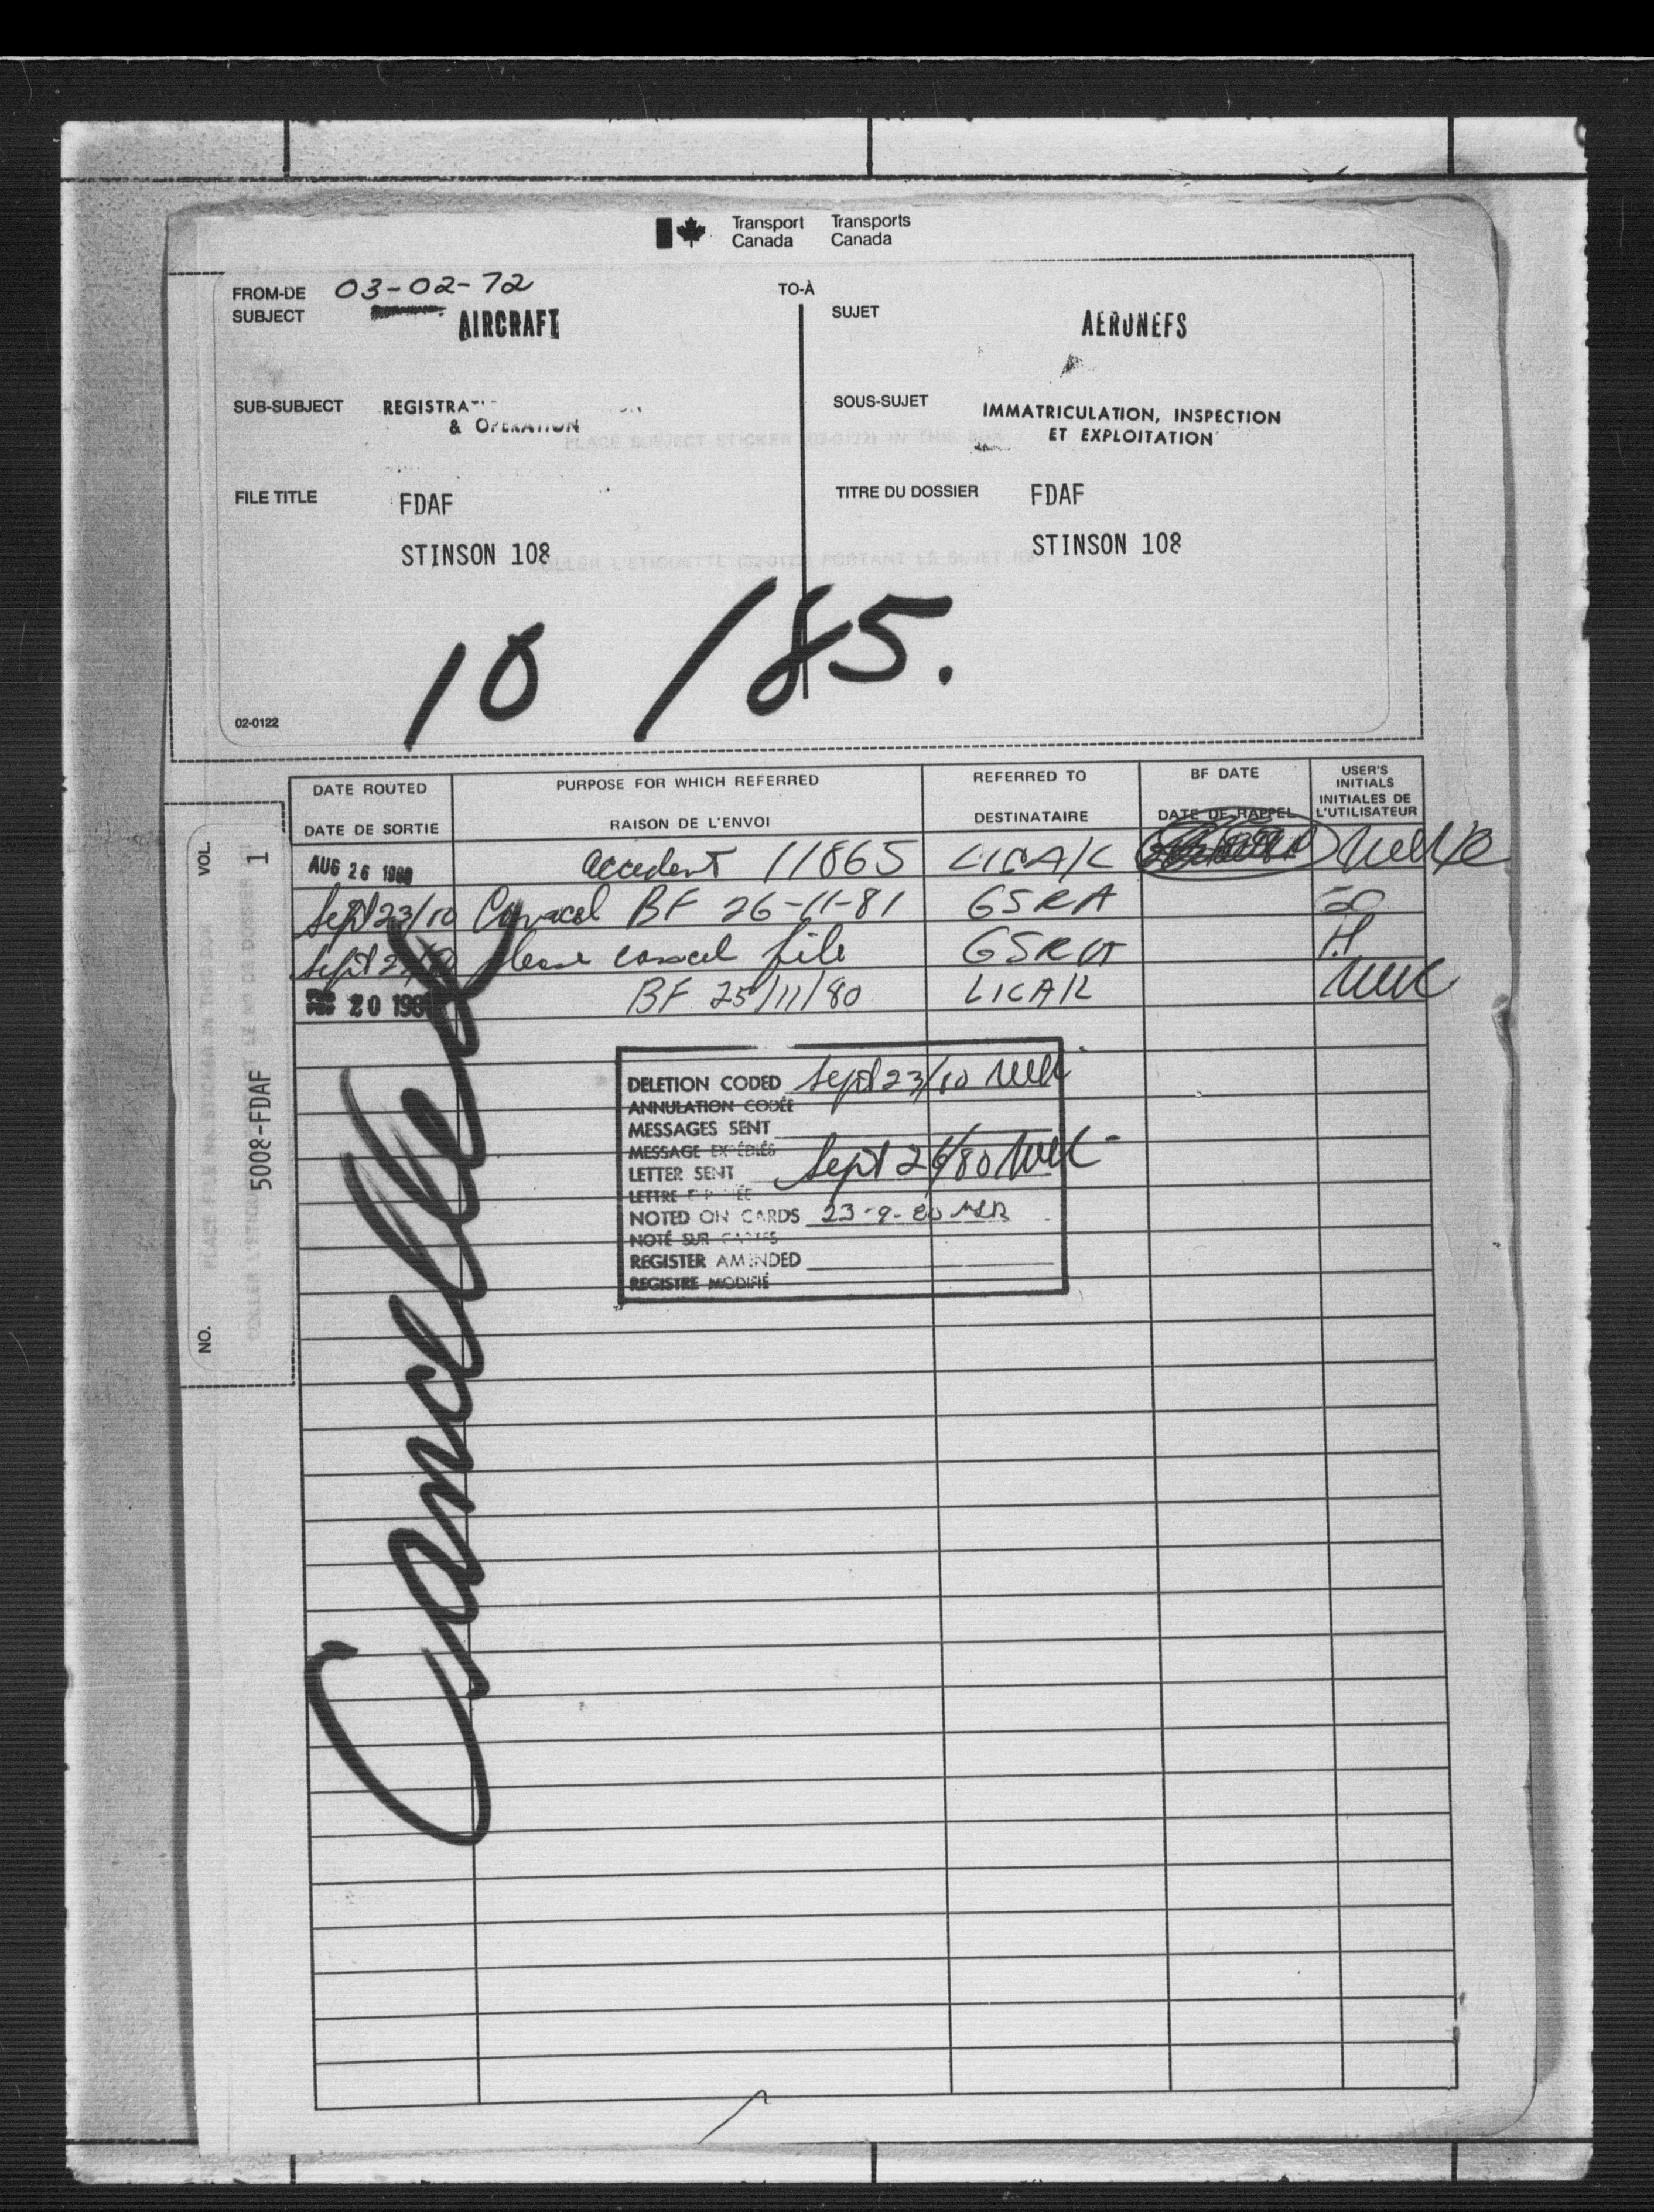 Transport Canada
Transports Canada
FROM-DE 03-02-72
TO-À
SUBJECT AIRCRAFT
SUJET AERONEFS
SUB-SUBJECT REGISTRA
& OPERATION
SOUS-SUJET IMMATRICULATION, INSPECTION
ET EXPLOITATION
PLACE SUBJECT STICKER (02-0122) IN THIS BOX
FILE TITLE FDAF
STINSON 108
TITRE DU DOSSIER FDAF
STINSON 108
COLLER L'ETIQUETTE (02-0122) PORTANT LE SUJET ICI
10 /85.
02-0122
DATE ROUTED
DATE DE SORTIE
PURPOSE FOR WHICH REFERRED
RAISON DE L'ENVOI
REFERRED TO
DESTINATAIRE
BF DATE
DATE DE RAPPEL
USER'S INITIALS
INITIALES DE L'UTILISATEUR
AUG 26 1980 accident 11865 LICA/C
Sept 23/80 Cancel BF 26-11-81 GSRA
Sept Please cancel file GSRA H
20 198 BF 25/11/80 LICAK
VOL. 1
5008-FDAF
NO.
PLACE FILE NO. STICKER IN THIS BOX
COLLER L'ETIQUETTE LE NO DE DOSSIER ICI
DELETION CODED Sept 23/80
ANNULATION CODÉE
MESSAGES SENT
MESSAGE EXPÉDIÉS
LETTER SENT Sept 26/80
LETTRE
NOTED ON CARDS 23-9-80
NOTÉ SUR CARTES
REGISTER AMENDED
REGISTRE MODIFIÉ
Cancelled